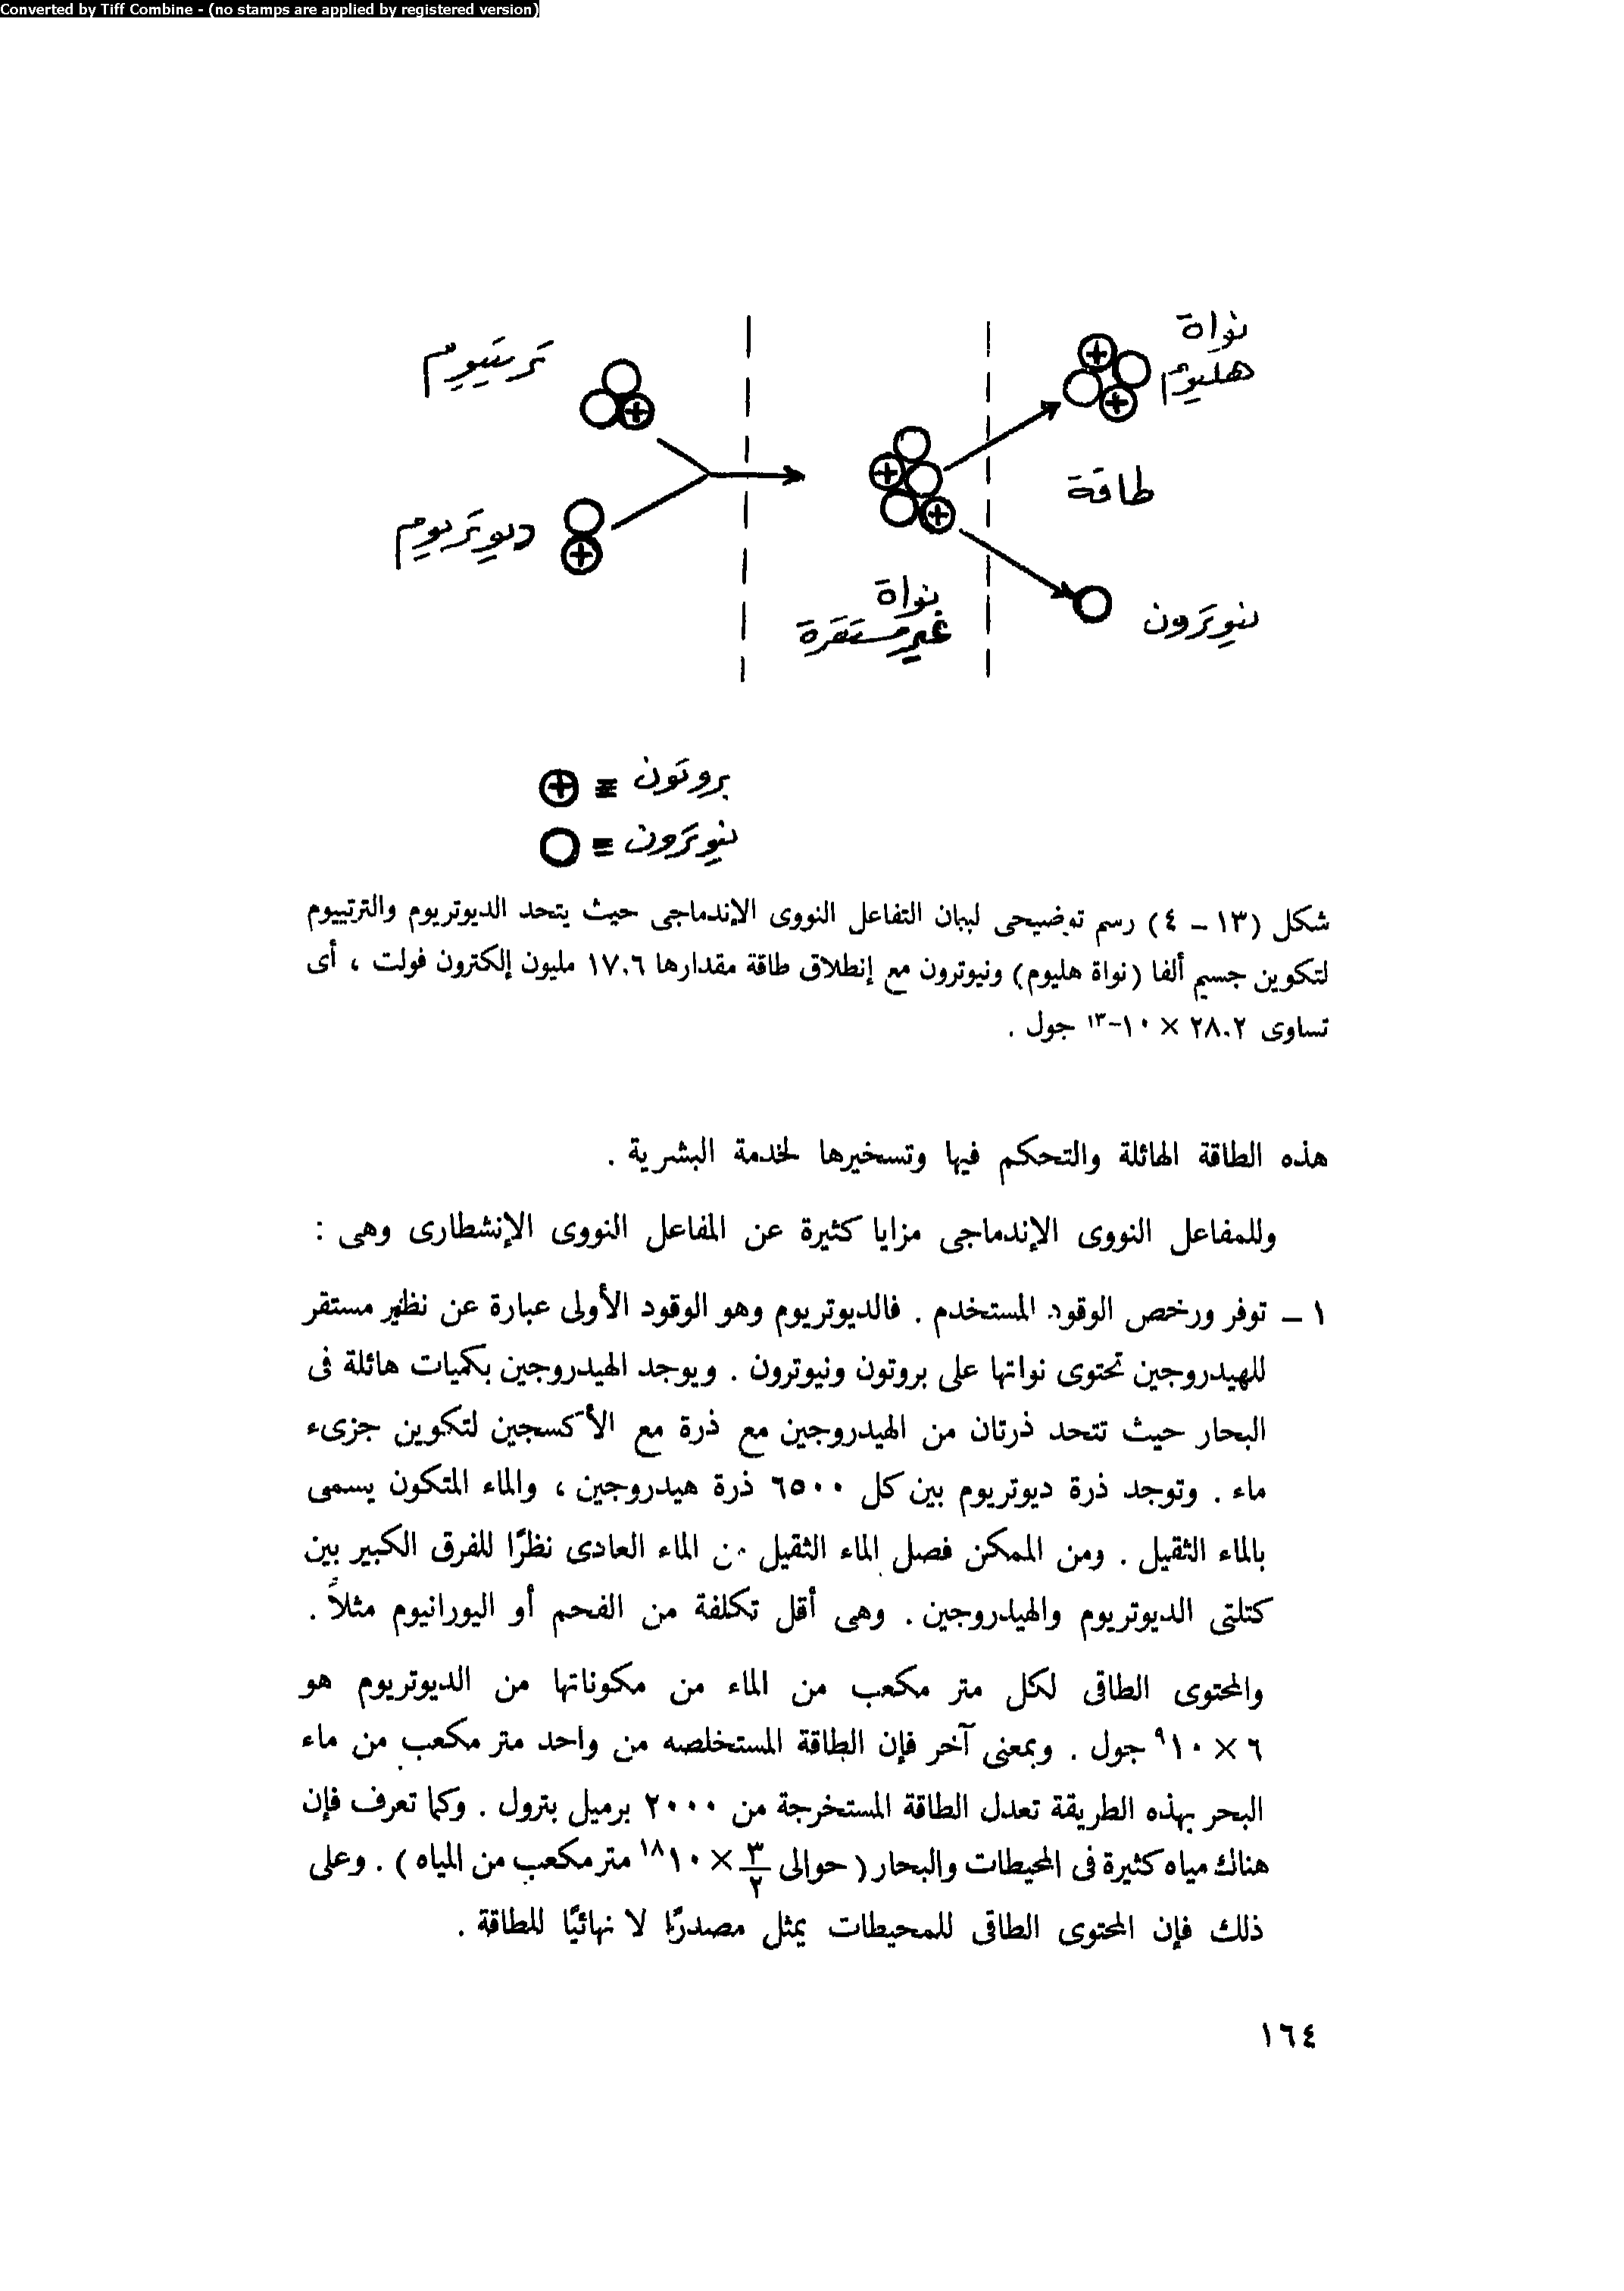 Converted by Tiff Combine - (no stamps are applied by registered version)
ترتييوم
ديوتريوم
نواة
غير مستقرة
نواة
هليوم
طاقة
نيوترون
⊕ ≡ بروتون
○ ≡ نيوترون
شكل (١٣ – ٤) رسم توضيحى لبيان التفاعل النووى الإندماجى حيث يتحد الديوتريوم والترتييوم
لتكوين جسيم ألفا (نواة هليوم) ونيوترون مع إنطلاق طاقة مقدارها ١٧.٦ مليون إلكترون فولت ، أى
تساوى ٢٨.٢ × ١٠⁻¹³ جول .
هذه الطاقة الهائلة والتحكم فيها وتسخيرها لخدمة البشرية .
وللمفاعل النووى الإندماجى مزايا كثيرة عن المفاعل النووى الإنشطارى وهى :
١ – توفر ورخص الوقود المستخدم . فالديوتريوم وهو الوقود الأولى عبارة عن نظير مستقر
للهيدروجين تحتوى نواتها على بروتون ونيوترون . ويوجد الهيدروجين بكميات هائلة فى
البحار حيث تتحد ذرتان من الهيدروجين مع ذرة مع الأكسجين لتكوين جزىء
ماء . وتوجد ذرة ديوتريوم بين كل ٦٥٠٠ ذرة هيدروجين ، والماء المتكون يسمى
بالماء الثقيل . ومن الممكن فصل الماء الثقيل من الماء العادى نظرًا للفرق الكبير بين
كتلتى الديوتريوم والهيدروجين . وهى أقل تكلفة من الفحم أو اليورانيوم مثلاً .
والمحتوى الطاقى لكل متر مكعب من الماء من مكوناتها من الديوتريوم هو
٦ × ١٠⁹ جول . وبمعنى آخر فإن الطاقة المستخلصه من واحد متر مكعب من ماء
البحر بهذه الطريقة تعدل الطاقة المستخرجة من ٢٠٠٠ برميل بترول . وكما تعرف فإن
هناك مياه كثيرة فى المحيطات والبحار ( حوالى ٣/٢ × ١٠¹⁸ متر مكعب من المياه ) . وعلى
ذلك فإن المحتوى الطاقى للمحيطات يمثل مصدرًا لا نهائيًا للطاقة .
١٦٤